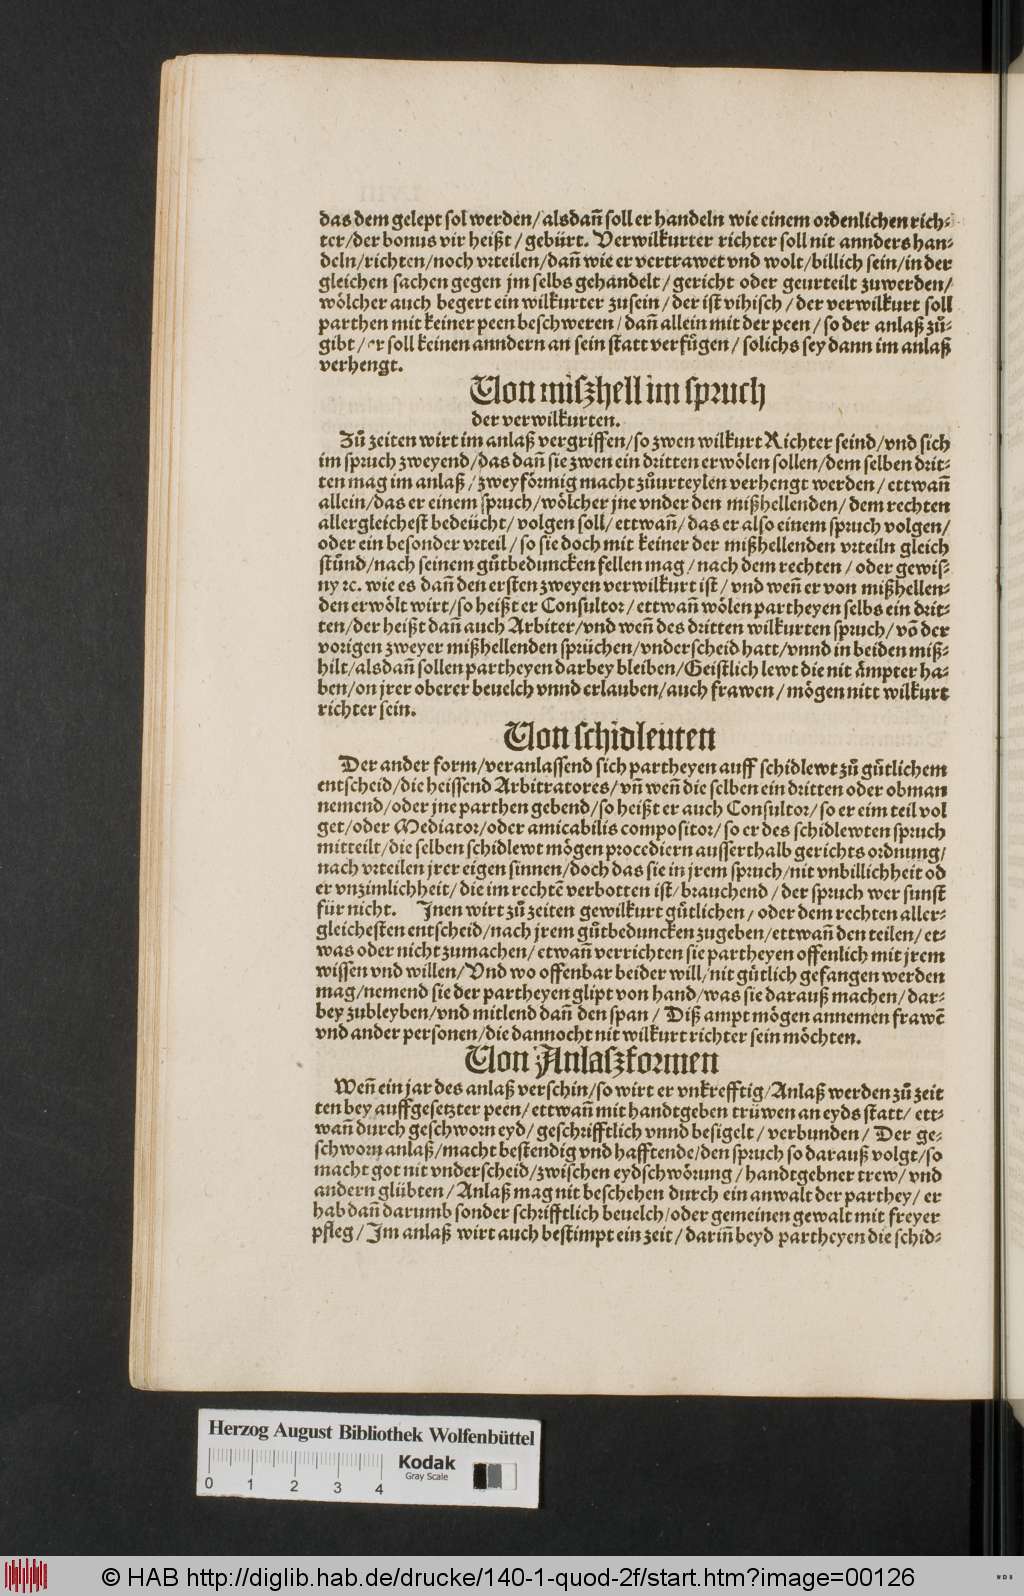 das dem gelept sol werden/alsdañ soll er handeln wie einem ordenlichen rich-
ter/der bonus vir heißt/gebürt. Verwilkurter richter soll nit annders han-
deln/richten/noch vrteilen/dañ wie er vertrawet vnd wolt/billich sein/in der
gleichen sachen gegen jm selbs gehandelt/gericht oder geurteilt zuwerden/
wölcher auch begert ein wilkurter zusein/der ist vihisch/der verwilkurt soll
parthen mit keiner peen beschweren/dañ allein mit der peen/so der anlaß zuͦ-
gibt/er soll keinen anndern an sein statt verfuͤgen/solichs sey dann im anlaß
verhengt.
Von miszhell im spruch
der verwilkurten.
Zuͦ zeiten wirt im anlaß vergriffen/so zwen wilkurt Richter seind/vnd sich
im spruch zweyend/das dañ sie zwen ein dritten erwölen sollen/dem selben drit-
ten mag im anlaß/zweyförmig macht zuͦurteylen verhengt werden/ettwañ
allein/das er einem spruch/wölcher jne vnder den mißhellenden/dem rechten
allergleichest bedeücht/volgen soll/ettwañ/das er also einem spruch volgen/
oder ein besonder vrteil/so sie doch mit keiner der mißhellenden vrteiln gleich
stuͤnd/nach seinem guͦtbeduncken fellen mag/nach dem rechten/oder gewis-
ny ꝛc. wie es dañ den ersten zweyen verwilkurt ist/vnd weñ er von mißhellen-
den erwölt wirt/so heißt er Consultor/ettwañ wölen partheyen selbs ein drit-
ten/der heißt dañ auch Arbiter/vnd weñ des dritten wilkurten spruch/vō der
vorigen zweyer mißhellenden sprüchen/vnderscheid hatt/vnnd in beiden miß-
hilt/alsdañ sollen partheyen darbey bleiben/Geistlich lewt die nit ämpter ha-
ben/on jrer oberer beuelch vnnd erlauben/auch frawen/mögen nitt wilkurt
richter sein.
Von schidleuten
Der ander form/veranlassend sich partheyen auff schidlewt zuͦ guͤtlichem
entscheid/die heissend Arbitratores/vñ weñ die selben ein dritten oder obman
nemend/oder jne parthen gebend/so heißt er auch Consultor/so er eim teil vol
get/oder Mediator/oder amicabilis compositor/so er des schidlewten spruch
mitteilt/die selben schidlewt mögen procediern ausserthalb gerichts ordnung/
nach vrteilen jrer eigen sinnen/doch das sie in jrem spruch/nit vnbillichheit od
er vnzimlichheit/die im rechtē verbotten ist/brauchend/der spruch wer sunst
für nicht. Jnen wirt zuͦ zeiten gewilkurt guͤtlichen/oder dem rechten aller-
gleichesten entscheid/nach jrem guͦtbeduncken zugeben/ettwañ den teilen/et-
was oder nicht zumachen/etwañ verrichten sie partheyen offenlich mit jrem
wissen vnd willen/Vnd wo offenbar beider will/nit guͤtlich gefangen werden
mag/nemend sie der partheyen glipt von hand/was sie darauß machen/dar-
bey zubleyben/vnd mitlend dañ den span/Diß ampt mögen annemen frawē
vnd ander personen/die dannocht nit wilkurt richter sein möchten.
Von Anlaszformen
Weñ ein jar des anlaß verschin/so wirt er vnkrefftig/Anlaß werden zuͦ zeit
ten bey auffgesetzter peen/ettwañ mit handtgeben trüwen an eyds statt/ett-
wañ durch geschworn eyd/geschrifftlich vnnd besigelt/verbunden/Der ge-
schworn anlaß/macht bestendig vnd hafftende/den spruch so darauß volgt/so
macht got nit vnderscheid/zwischen eydschwörung/handtgebner trew/vnd
andern glübten/Anlaß mag nit beschehen durch ein anwalt der parthey/er
hab dañ darumb sonder schrifftlich beuelch/oder gemeinen gewalt mit freyer
pfleg/Jm anlaß wirt auch bestimpt ein zeit/dariñ beyd partheyen die schid-
Herzog August Bibliothek Wolfenbüttel
Kodak
Gray Scale
0 1 2 3 4
© HAB http://diglib.hab.de/drucke/140-1-quod-2f/start.htm?image=00126